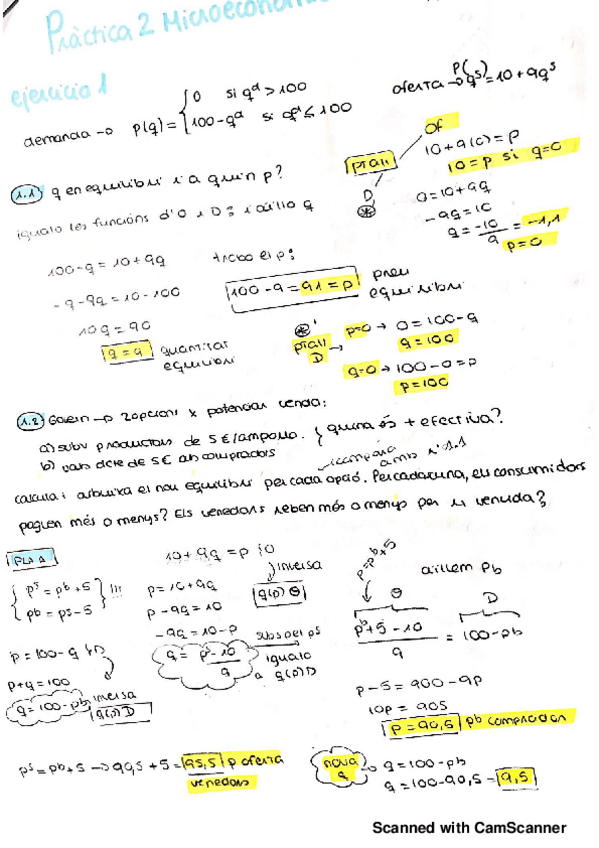 Pràctica 2 Microeconomia
ejercicio 1
demanda → p(q) = { 0 si qd > 100
100 - qd si qd ≤ 100
oferta → p(qs) = 10 + 9qs
1.1 q en equilibri i a quin p?
igualo les funcions d'O i D i aïllo q
100 - q = 10 + 9q
- q - 9q = 10 - 100
10q = 90
q = 9 quantitat equilibri
trobo el p:
100 - 9 = 91 = p preu equilibri
ptall
Of
10 + 9(0) = p
10 = p si q=0
0 = 10 + 9q
- 9q = 10
q = -10/9 = -1,1
p=0
D
*
*'
ptall D → p=0 → 0 = 100 - q
q = 100
q=0 → 100 - 0 = p
p = 100
1.2 Govern → 2 opcions x potenciar venda:
a) subv productors de 5€/ampolla.
b) vals dcte de 5€ als compradors
} quina és + efectiva?
compara amb l'1.1
calcula i dibuixa el nou equilibri per cada opció. Per cadascuna, els consumidors
paguen més o menys? Els venedors reben més o menys per u venuda?
Pla a
{ ps = pb + 5
pb = ps - 5 } !!!
p = 100 - q D
p + q = 100
q = 100 - pb inversa q(p) D
10 + 9q = p O
inversa
q(p) O
p = 10 + 9q
p - 9q = 10
- 9q = 10 - p
q = ps - 10 / 9
subs pel ps
igualo a q(p) D
p = pb + 5
aïllem pb
O D
pb + 5 - 10 / 9 = 100 - pb
p - 5 = 900 - 9p
10p = 905
p = 90,5 pb comprador
ps = pb + 5 → 99,5 + 5 = 95,5 p oferta
venedors
nova q → q = 100 - pb
q = 100 - 90,5 = 9,5
Scanned with CamScanner